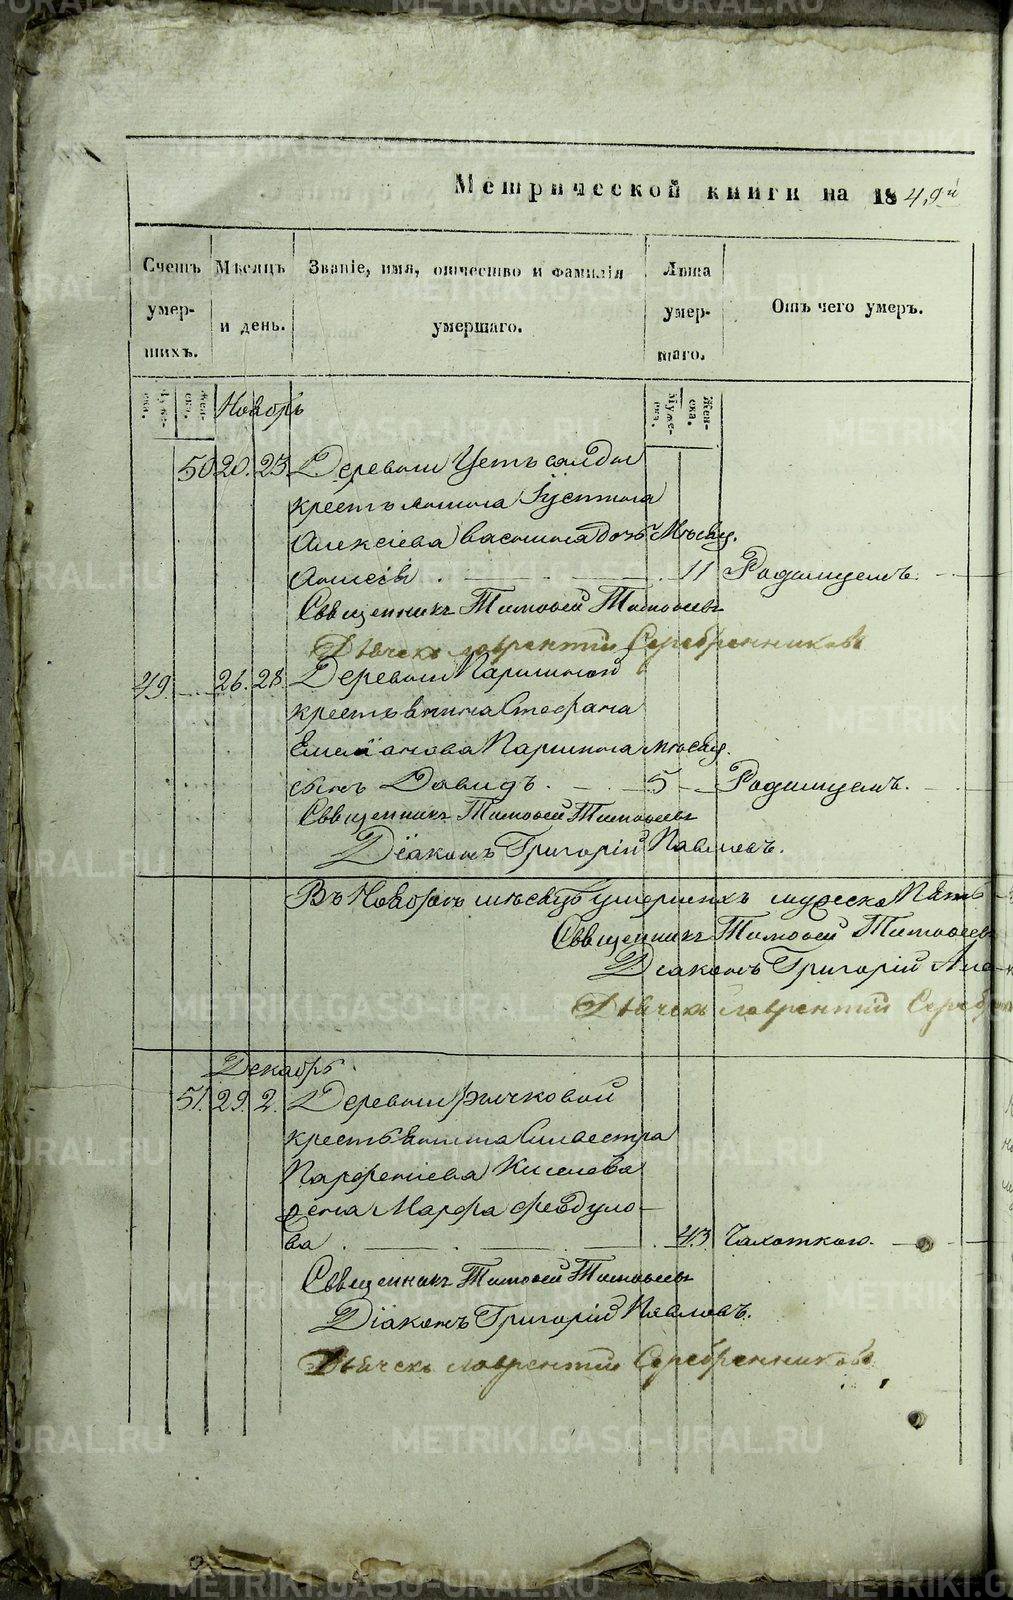 Метрической книги на 1849й
Счетъ умершихъ.
Мѣсяцъ и день.
Званіе, имя, отчество и фамилія умершаго.
Лѣта умершаго.
Отъ чего умеръ.
Мужеска. Женска.
Ноябрь
Мужеска. Женска.
50 20. 23. Деревни Усть салды
крестьянина Іустина
Алексіева Васонина дочь Мѣсяц.
Анисія . 11 Родимцемъ.
Священникъ Тимофей Тимофеевъ
Дьячекъ Лаврентій Серебренниковъ
49. 26. 28. Деревни Паршиной
крестьянина Стефана
Емеліанова Паршина мѣсяц.
сынъ Давидъ. 5 Родимцемъ.
Священникъ Тимофей Тимофеевъ
Діаконъ Григорій Павловъ.
Въ Ноябрѣ мѣсяцѣ умершихъ мужеска Пять
Священникъ Тимофей Тимофеевъ
Діаконъ Григорій
Дьячекъ Лаврентій
Декабрь.
51. 29. 2. Деревни Рычковой
крестьянина Сильвестра
Парфеніева Киселева
жена Марфа Федуло-
ва . 43. Чахоткою.
Священникъ Тимофей Тимофеевъ
Діаконъ Григорій Павловъ.
Дьячекъ Лаврентій Серебренниковъ
METRIKI.GASO-URAL.RU